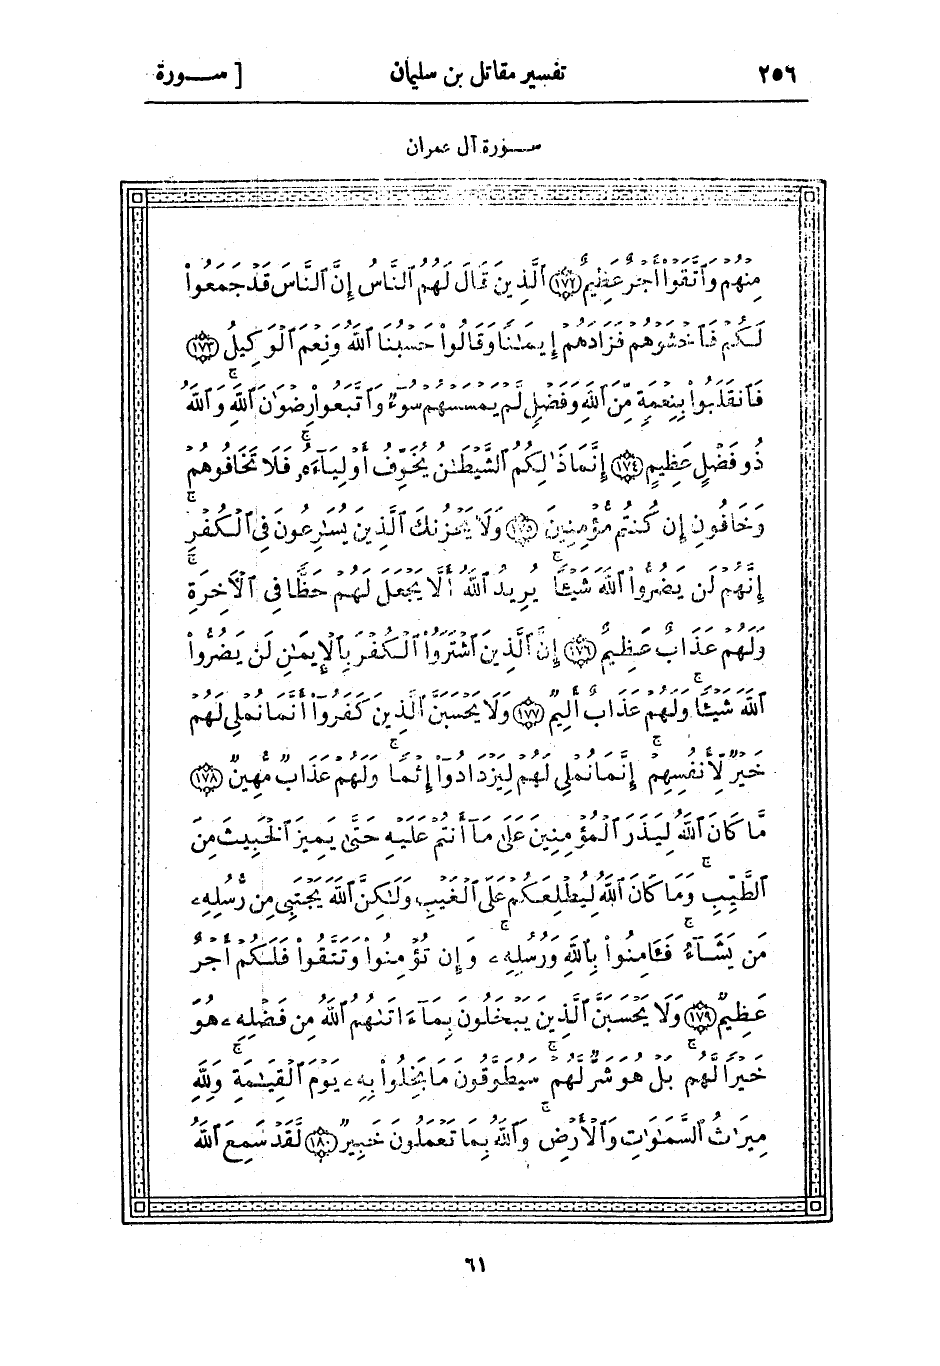 ٢٥٦ تفسير مقاتل بن سليمان [ ســورة
ســورة آل عمران
مِنْهُمْ وَٱتَّقَوْا۟ أَجْرٌ عَظِيمٌ ١٧٢ ٱلَّذِينَ قَالَ لَهُمُ ٱلنَّاسُ إِنَّ ٱلنَّاسَ قَدْ جَمَعُوا۟
لَكُمْ فَٱخْشَوْهُمْ فَزَادَهُمْ إِيمَٰنًا وَقَالُوا۟ حَسْبُنَا ٱللَّهُ وَنِعْمَ ٱلْوَكِيلُ ١٧٣
فَٱنقَلَبُوا۟ بِنِعْمَةٍ مِّنَ ٱللَّهِ وَفَضْلٍ لَّمْ يَمْسَسْهُمْ سُوٓءٌ وَٱتَّبَعُوا۟ رِضْوَٰنَ ٱللَّهِ ۗ وَٱللَّهُ
ذُو فَضْلٍ عَظِيمٍ ١٧٤ إِنَّمَا ذَٰلِكُمُ ٱلشَّيْطَٰنُ يُخَوِّفُ أَوْلِيَآءَهُۥ فَلَا تَخَافُوهُمْ
وَخَافُونِ إِن كُنتُم مُّؤْمِنِينَ ١٧٥ وَلَا يَحْزُنكَ ٱلَّذِينَ يُسَٰرِعُونَ فِى ٱلْكُفْرِ ۚ
إِنَّهُمْ لَن يَضُرُّوا۟ ٱللَّهَ شَيْـًٔا ۗ يُرِيدُ ٱللَّهُ أَلَّا يَجْعَلَ لَهُمْ حَظًّا فِى ٱلْءَاخِرَةِ ۖ
وَلَهُمْ عَذَابٌ عَظِيمٌ ١٧٦ إِنَّ ٱلَّذِينَ ٱشْتَرَوُا۟ ٱلْكُفْرَ بِٱلْإِيمَٰنِ لَن يَضُرُّوا۟
ٱللَّهَ شَيْـًٔا ۖ وَلَهُمْ عَذَابٌ أَلِيمٌ ١٧٧ وَلَا يَحْسَبَنَّ ٱلَّذِينَ كَفَرُوٓا۟ أَنَّمَا نُمْلِى لَهُمْ
خَيْرٌ لِّأَنفُسِهِمْ ۚ إِنَّمَا نُمْلِى لَهُمْ لِيَزْدَادُوٓا۟ إِثْمًا ۚ وَلَهُمْ عَذَابٌ مُّهِينٌ ١٧٨
مَّا كَانَ ٱللَّهُ لِيَذَرَ ٱلْمُؤْمِنِينَ عَلَىٰ مَآ أَنتُمْ عَلَيْهِ حَتَّىٰ يَمِيزَ ٱلْخَبِيثَ مِنَ
ٱلطَّيِّبِ ۗ وَمَا كَانَ ٱللَّهُ لِيُطْلِعَكُمْ عَلَى ٱلْغَيْبِ وَلَٰكِنَّ ٱللَّهَ يَجْتَبِى مِن رُّسُلِهِۦ
مَن يَشَآءُ ۖ فَـَٔامِنُوا۟ بِٱللَّهِ وَرُسُلِهِۦ ۚ وَإِن تُؤْمِنُوا۟ وَتَتَّقُوا۟ فَلَكُمْ أَجْرٌ
عَظِيمٌ ١٧٩ وَلَا يَحْسَبَنَّ ٱلَّذِينَ يَبْخَلُونَ بِمَآ ءَاتَىٰهُمُ ٱللَّهُ مِن فَضْلِهِۦ هُوَ
خَيْرًا لَّهُم ۖ بَلْ هُوَ شَرٌّ لَّهُمْ ۖ سَيُطَوَّقُونَ مَا بَخِلُوا۟ بِهِۦ يَوْمَ ٱلْقِيَٰمَةِ ۗ وَلِلَّهِ
مِيرَٰثُ ٱلسَّمَٰوَٰتِ وَٱلْأَرْضِ ۗ وَٱللَّهُ بِمَا تَعْمَلُونَ خَبِيرٌ ١٨٠ لَّقَدْ سَمِعَ ٱللَّهُ
٦١